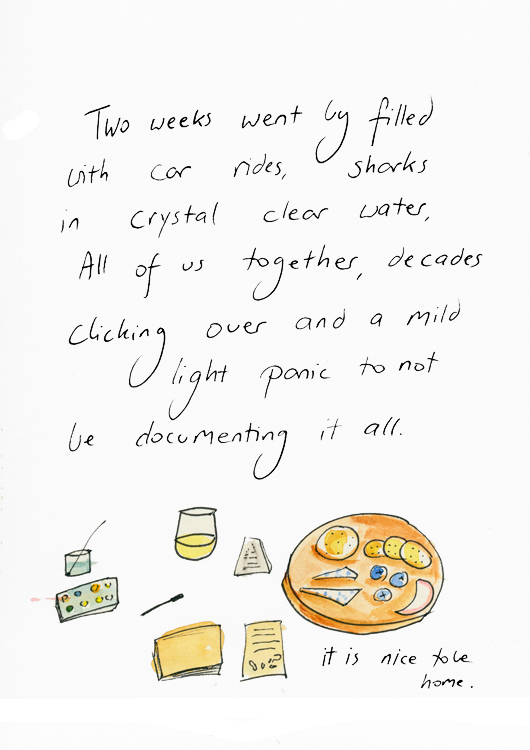 Two weeks went by filled
with car rides, sharks
in crystal clear water,
All of us together, decades
clicking over and a mild
light panic to not
be documenting it all.
it is nice to be
home.